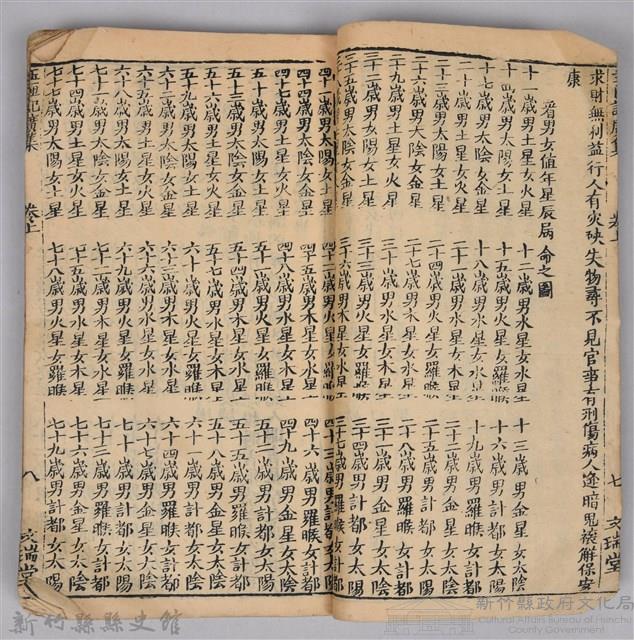 求財無利益行人有災殃失物尋不見官事有刑傷病人逢暗鬼禳解保安
康
看男女值年星辰局命之圖
十一歲男土星女火星 十二歲男水星女木星 十三歲男金星女太陰
十四歲男太陽女土星 十五歲男火星女羅睺 十六歲男計都女太陽
十七歲男太陰女金星 十八歲男木星女水星 十九歲男羅睺女計都
二十歲男土星女火星 二十一歲男水星女木星 二十二歲男金星女太陰
二十三歲男太陽女土星 二十四歲男火星女羅睺 二十五歲男計都女太陽
二十六歲男太陰女金星 二十七歲男木星女水星 二十八歲男羅睺女計都
二十九歲男土星女火星 三十歲男水星女木星 三十一歲男金星女太陰
三十二歲男太陽女土星 三十三歲男火星女羅睺 三十四歲男計都女太陽
三十五歲男太陰女金星 三十六歲男木星女水星 三十七歲男羅睺女計都
卷上 七 文瑞堂
四十一歲男太陽女土星 四十二歲男火星女羅睺 四十三歲男計都女太陽
四十四歲男太陰女金星 四十五歲男木星女水星 四十六歲男羅睺女計都
四十七歲男土星女火星 四十八歲男水星女木星 四十九歲男金星女太陰
五十歲男太陽女土星 五十一歲男火星女羅睺 五十二歲男計都女太陽
五十三歲男太陰女金星 五十四歲男木星女水星 五十五歲男羅睺女計都
五十六歲男土星女火星 五十七歲男水星女木星 五十八歲男金星女太陰
五十九歲男太陽女土星 六十歲男火星女羅睺 六十一歲男計都女太陽
六十二歲男太陰女金星 六十三歲男木星女水星 六十四歲男羅睺女計都
六十五歲男土星女火星 六十六歲男水星女木星 六十七歲男金星女太陰
六十八歲男太陽女土星 六十九歲男火星女羅睺 七十歲男計都女太陽
七十一歲男太陰女金星 七十二歲男木星女水星 七十三歲男羅睺女計都
七十四歲男土星女火星 七十五歲男水星女木星 七十六歲男金星女太陰
七十七歲男太陽女土星 七十八歲男火星女羅睺 七十九歲男計都女太陽
卷上 八 文瑞堂
新竹縣縣史館
新竹縣政府文化局
Cultural Affairs Bureau of Hsinchu County Government